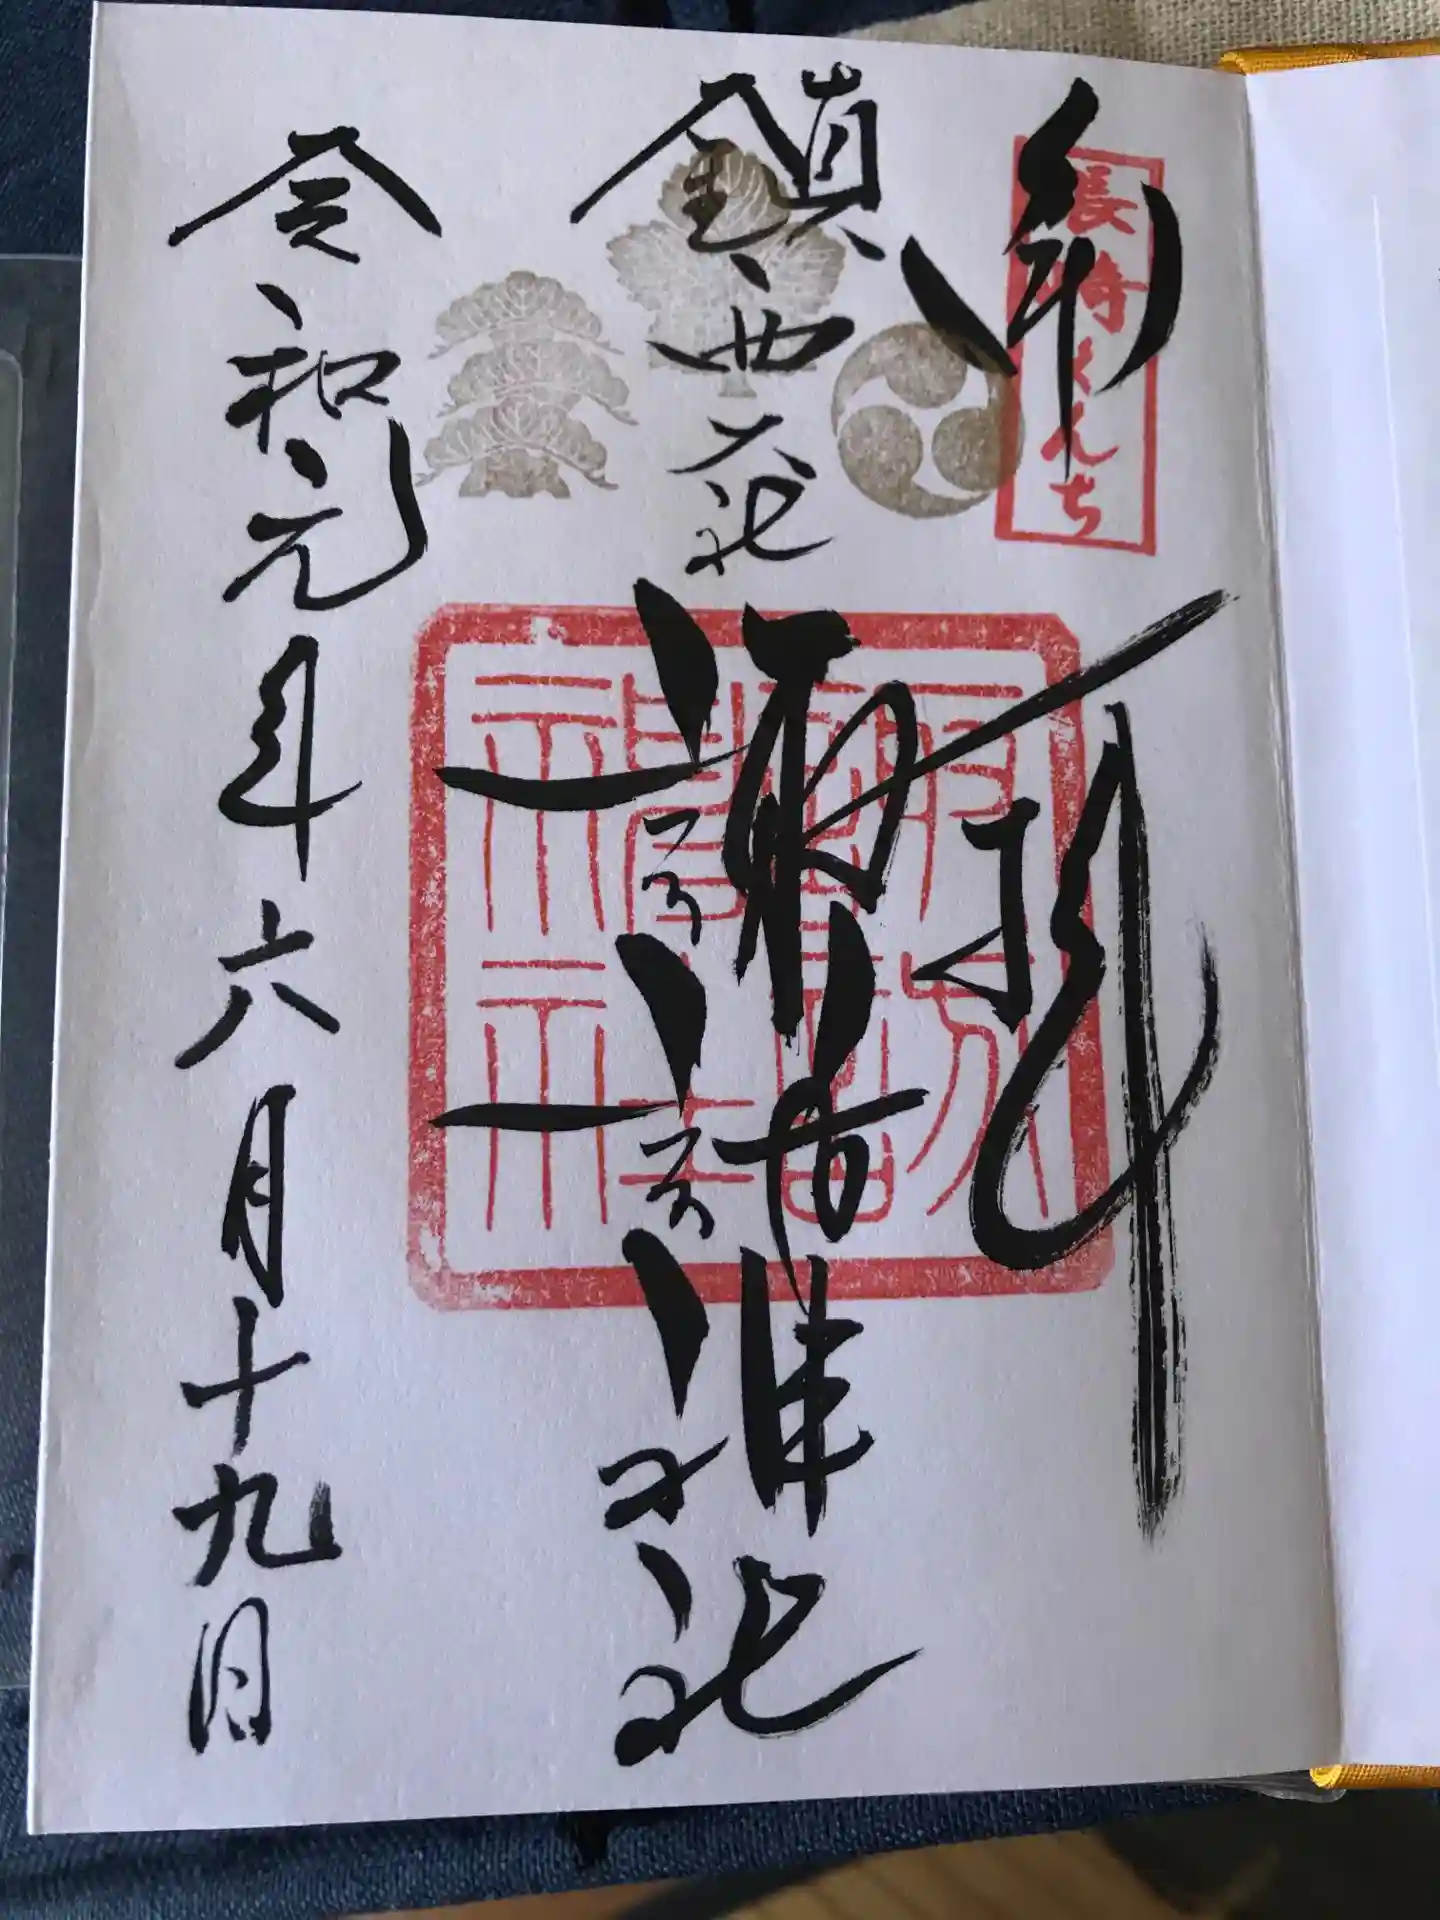 奉拝
長崎くんち
鎮西大社
諏訪神社
諏訪神社
令和元年六月十九日